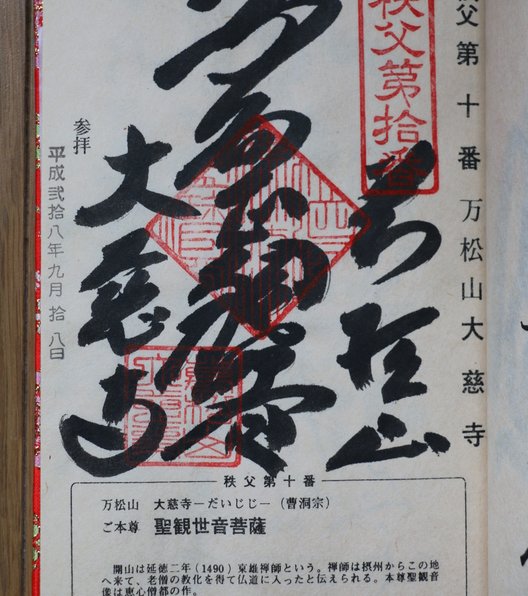 父第十番万松山大慈寺
秩父第拾番
万松山
大慈寺
参拝
平成弐拾八年九月拾八日
秩父第十番
万松山 大慈寺ーだいじじー（曹洞宗）
ご本尊 聖観世音菩薩
開山は延徳二年（1490）東雄禅師という。禅師は摂州からこの地
へ来て、老僧の教化を得て仏道に入ったと伝えられる。本尊聖観音
像は恵心僧都の作。